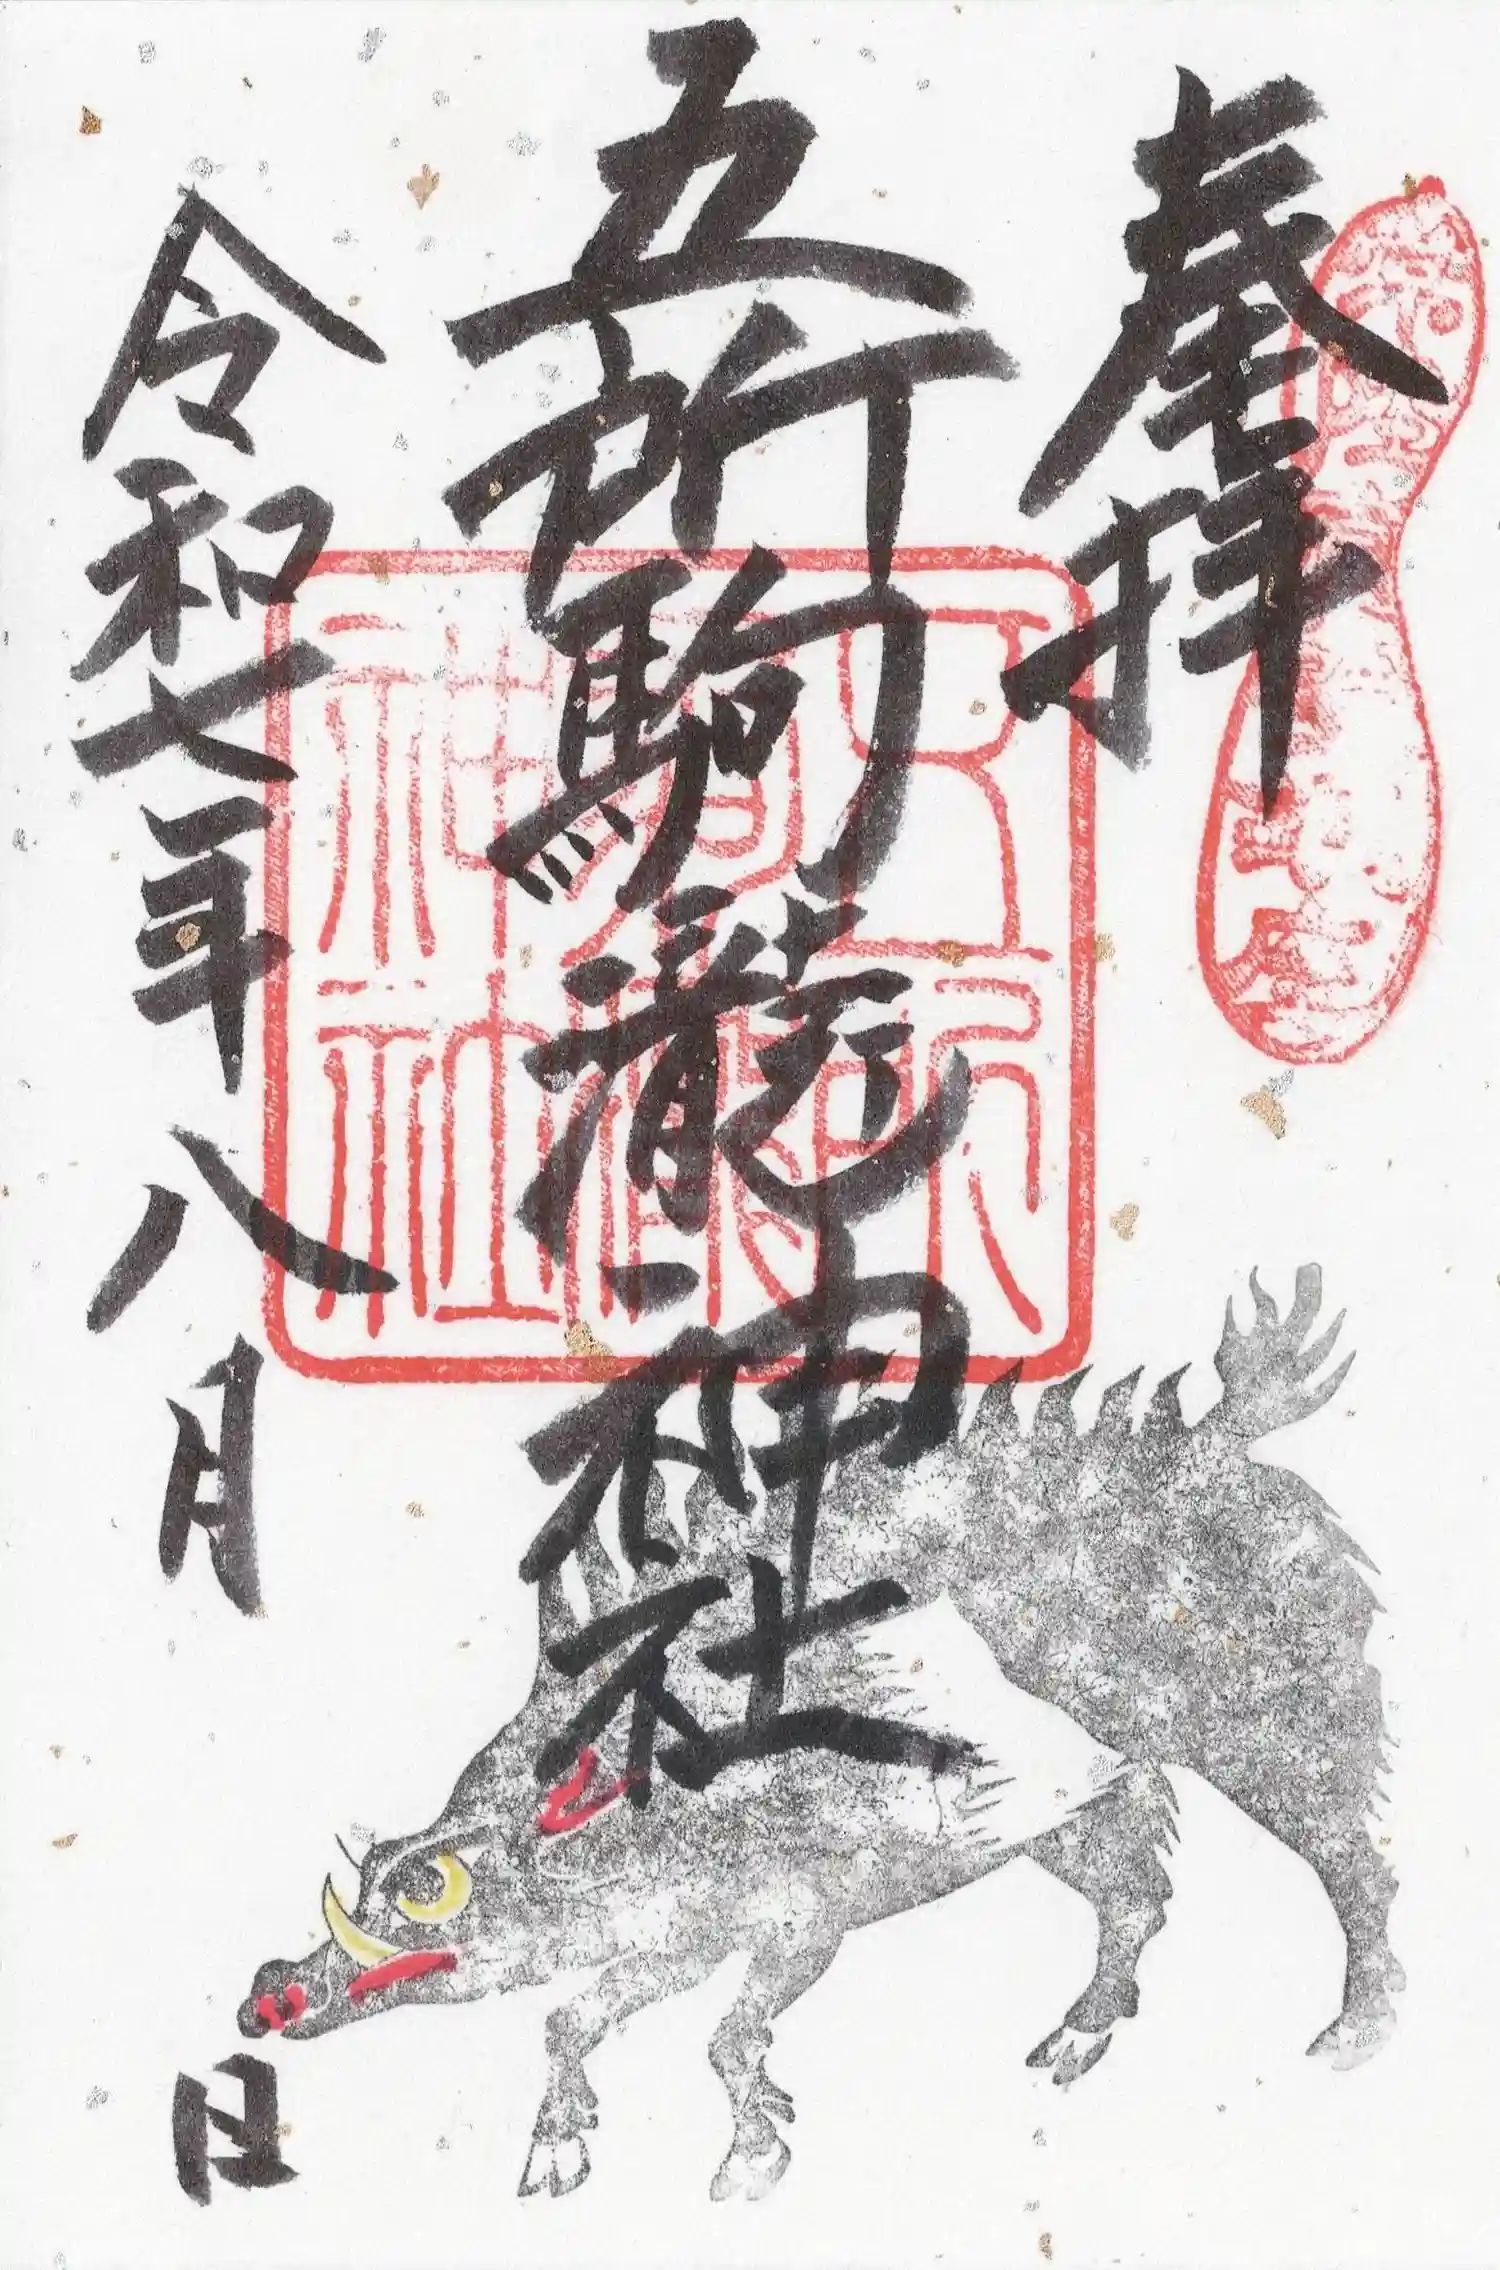 奉拝
五所駒瀧神社
五所駒瀧神社
令和七年八月　日